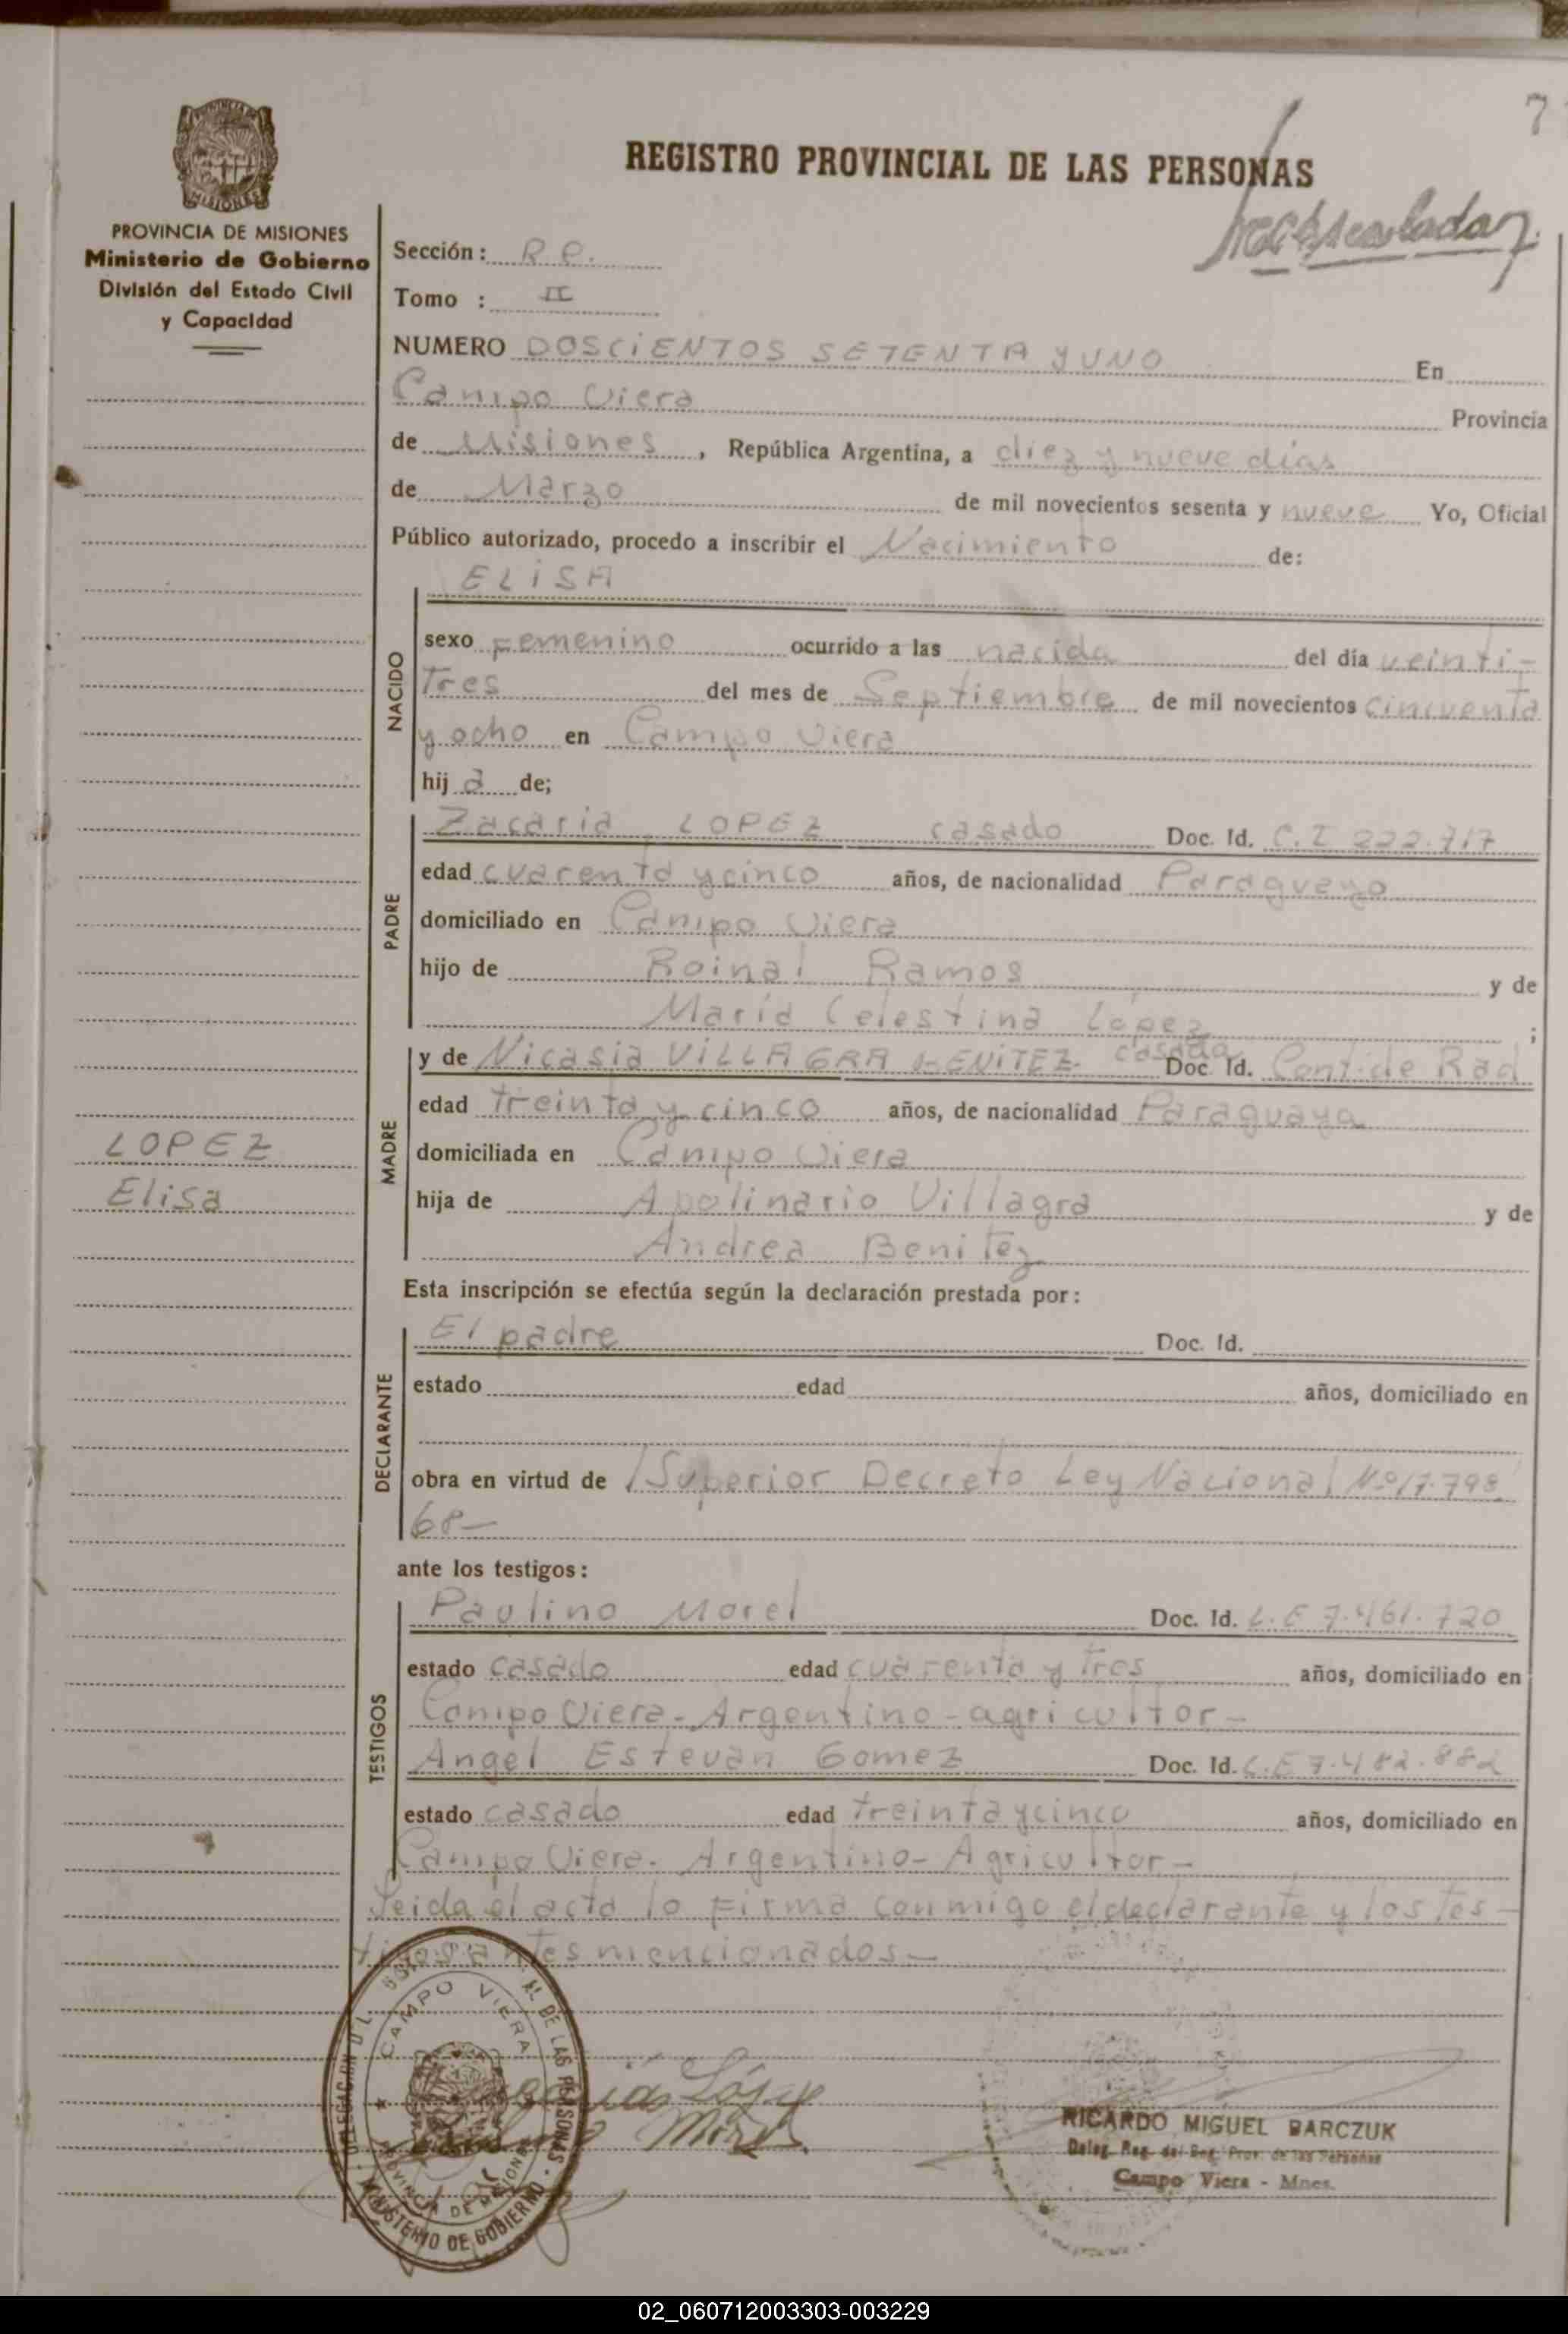 7
REGISTRO PROVINCIAL DE LAS PERSONAS
PROVINCIA DE MISIONES
Ministerio de Gobierno
División del Estado Civil
y Capacidad
Sección: R.P.
Tomo : II
NUMERO DOSCIENTOS SETENTA y UNO En
Campo Viera Provincia
de Misiones, República Argentina, a diez y nueve días
de Marzo de mil novecientos sesenta y nueve Yo, Oficial
Público autorizado, procedo a inscribir el Nacimiento de:
NACIDO
ELISA
sexo Femenino ocurrido a las nacida del día veinti-
Tres del mes de Septiembre de mil novecientos cincuenta
y ocho en Campo Viera
hija de;
PADRE
Zacaria LOPEZ casado Doc. Id. C.I 222.717
edad cuarenta y cinco años, de nacionalidad Paragueyo
domiciliado en Campo Viera
hijo de Roinal Ramos y de
Maria Celestina López ;
MADRE
y de Nicasia VILLAGRA BENITEZ casada Doc. Id. Cont. de Rad
edad treinta y cinco años, de nacionalidad Paraguaya
domiciliada en Campo Viera
hija de Apolinario Villagra y de
Andrea Benitez
LOPEZ
Elisa
Esta inscripción se efectúa según la declaración prestada por:
DECLARANTE
El padre Doc. Id.
estado edad años, domiciliado en
obra en virtud de /Superior Decreto Ley Nacional Nº17.798/
68-
ante los testigos:
TESTIGOS
Paulino Morel Doc. Id. L.E 7.461.720
estado casado edad cuarenta y Tres años, domiciliado en
Campo Viera - Argentino - agricultor -
Angel Estevan Gomez Doc. Id. L.E 7.482.882
estado casado edad treinta y cinco años, domiciliado en
Campo Viera - Argentino - Agricultor -
Leida el acta lo Firma conmigo el declarante y los tes-
tigos antes mencionados -
CAMPO VIERA
PROVINCIA DE MISIONES
MINISTERIO DE GOBIERNO
López
Morel
RICARDO MIGUEL BARCZUK
Deleg. Reg. del Reg. Prov. de las Personas
Campo Viera - Mnes.
02_060712003303-003229